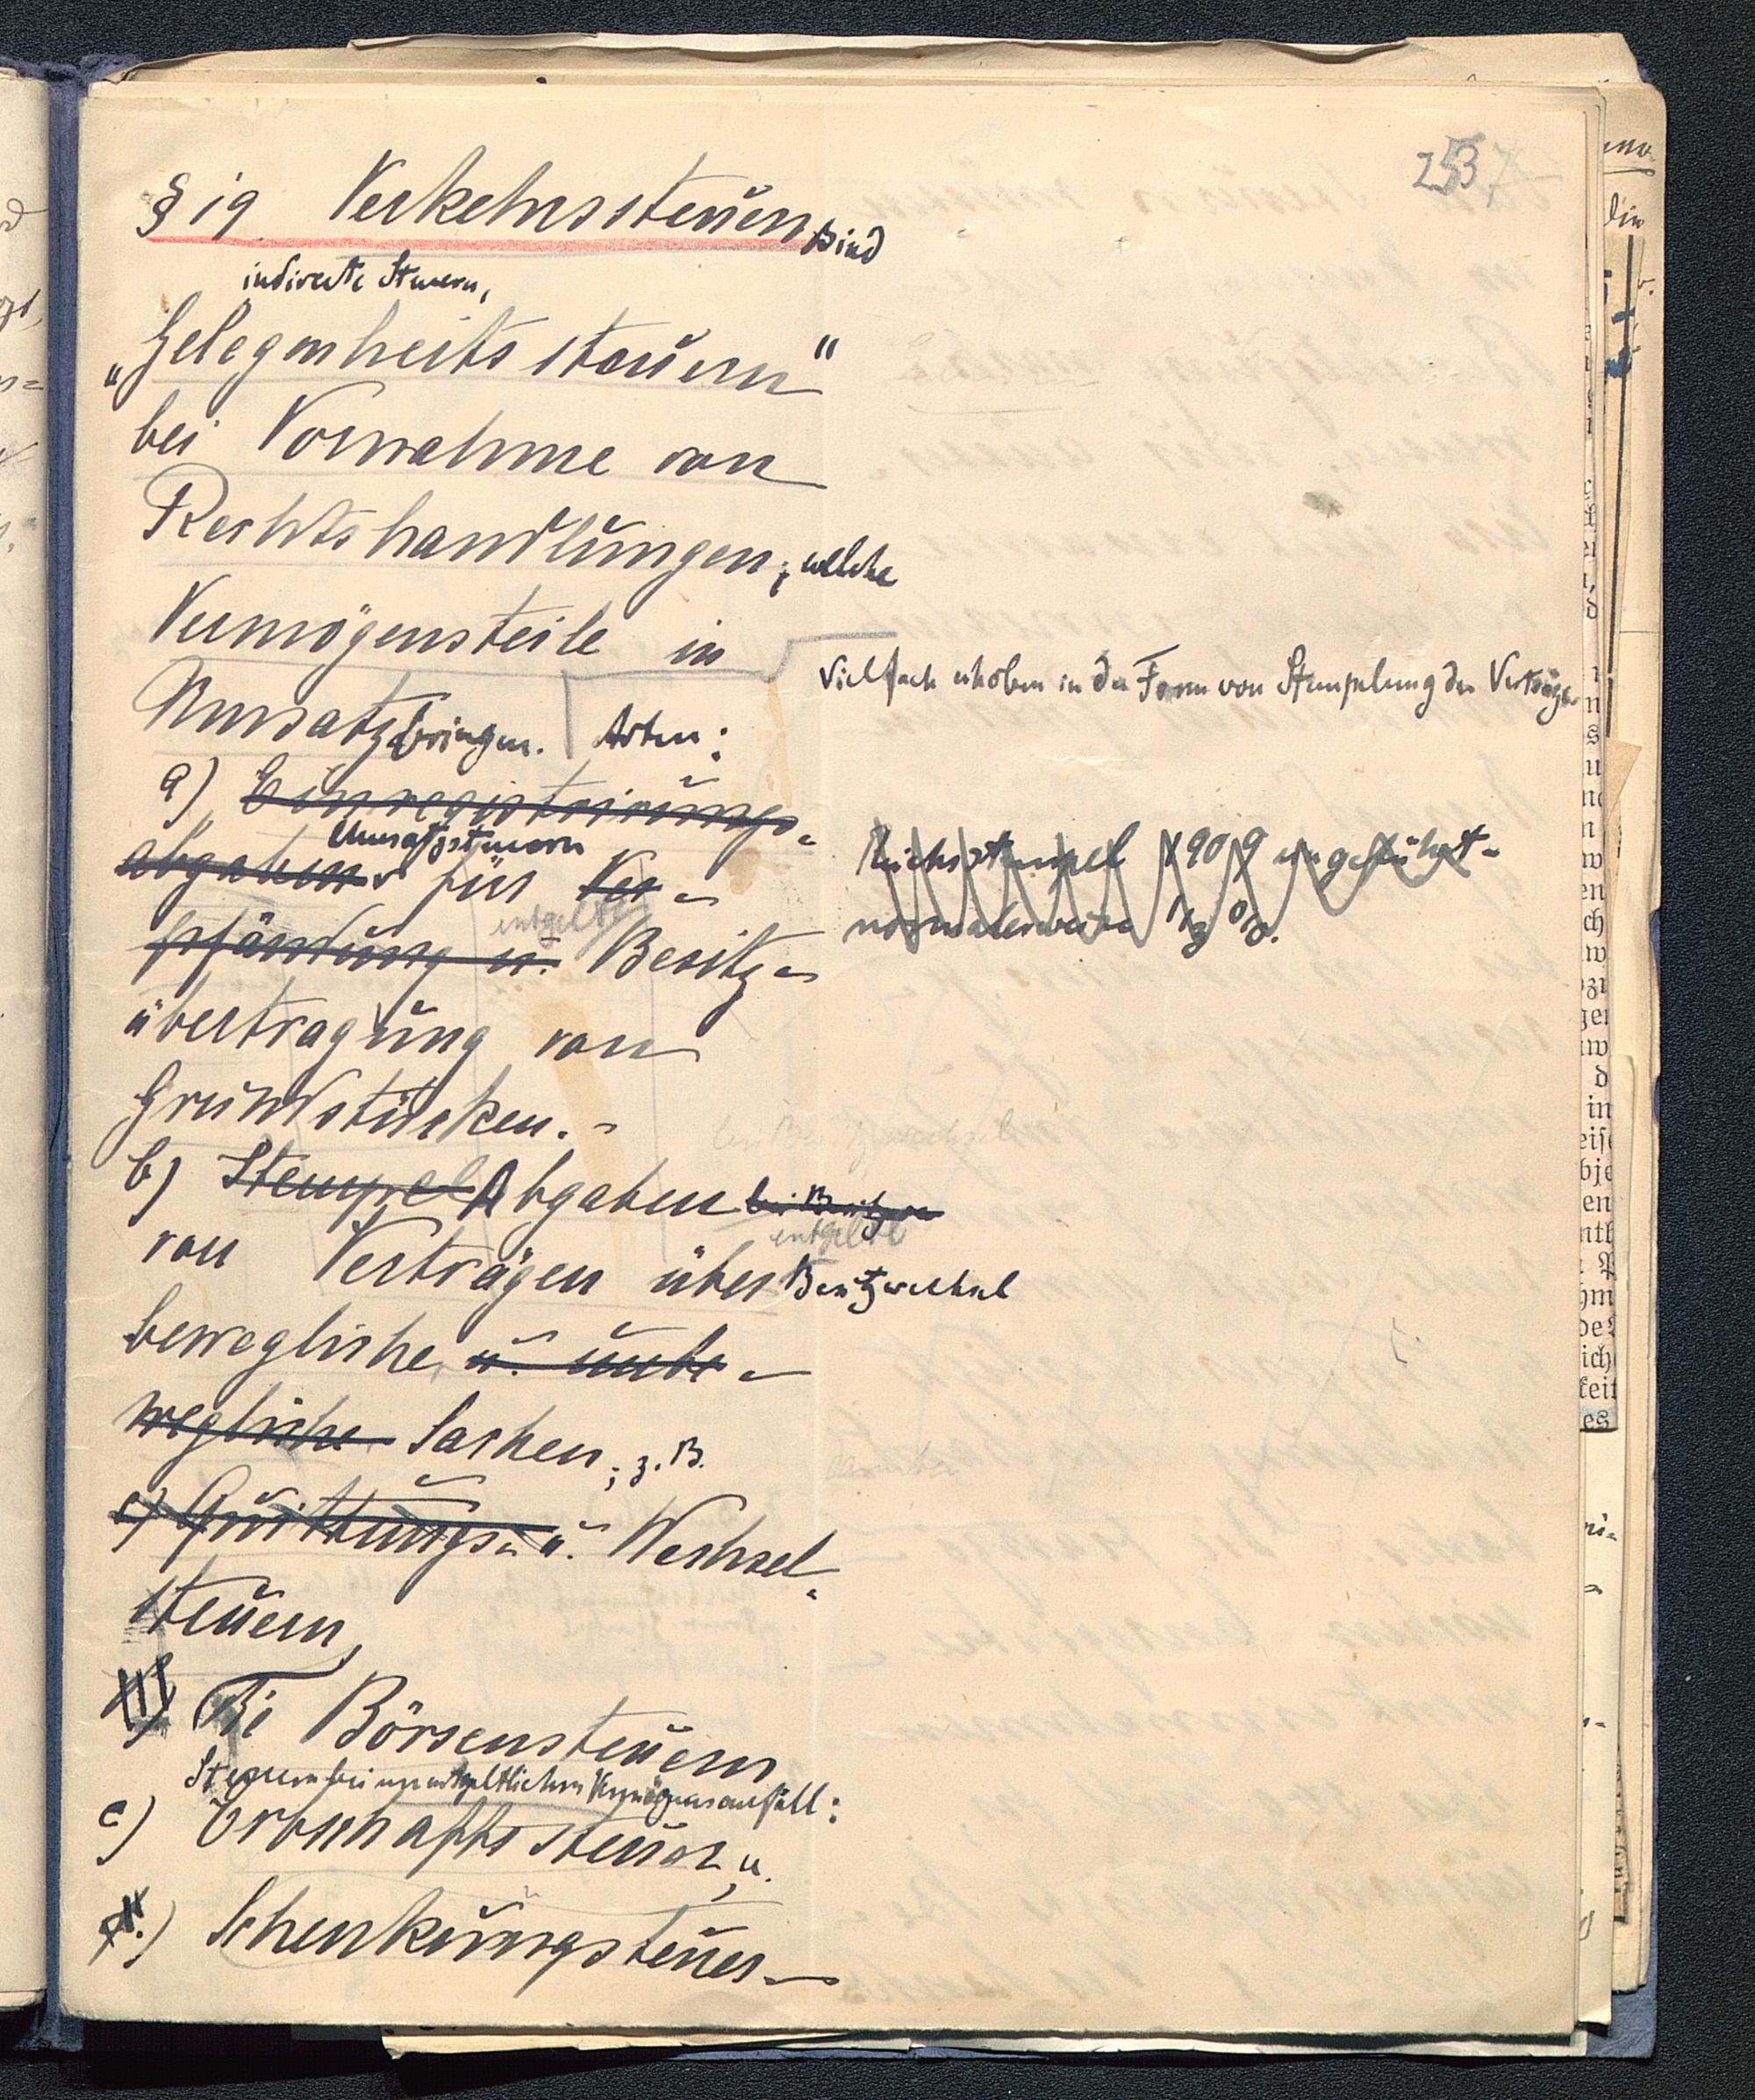 253
§ 19 Verkehrssteuern sind
indirecte Steuern,
„Gelegenheitssteuern"
bei Vornahme von
Rechtshandlungen, welche
Vermögensteile in
Umsatz bringen. Arten:
Vielfach erhoben in der Form von Stempelung der Verträge
a) Einregistrirungs-
abgaben Umsatzsteuern für Ver-
pfändung u. entgeltl Besitz-
übertragung von
Grundstücken. -
Reichsstempel 1909 eingeführt -
normalerweise 1/3 %.
b) Stempel Abgaben bei Besitzwe
von Verträgen über entgeltl Besitzwechsel
bewegliche u. unbe-
wegliche Sachen; z. B.
c) Quittungs- u. Wechsel-
steuern,
Die Börsensteuern
Steuern bei unentgeltlichem Vermögensanfall:
c) Erbschaftssteuer u.
Schenkungsteuer